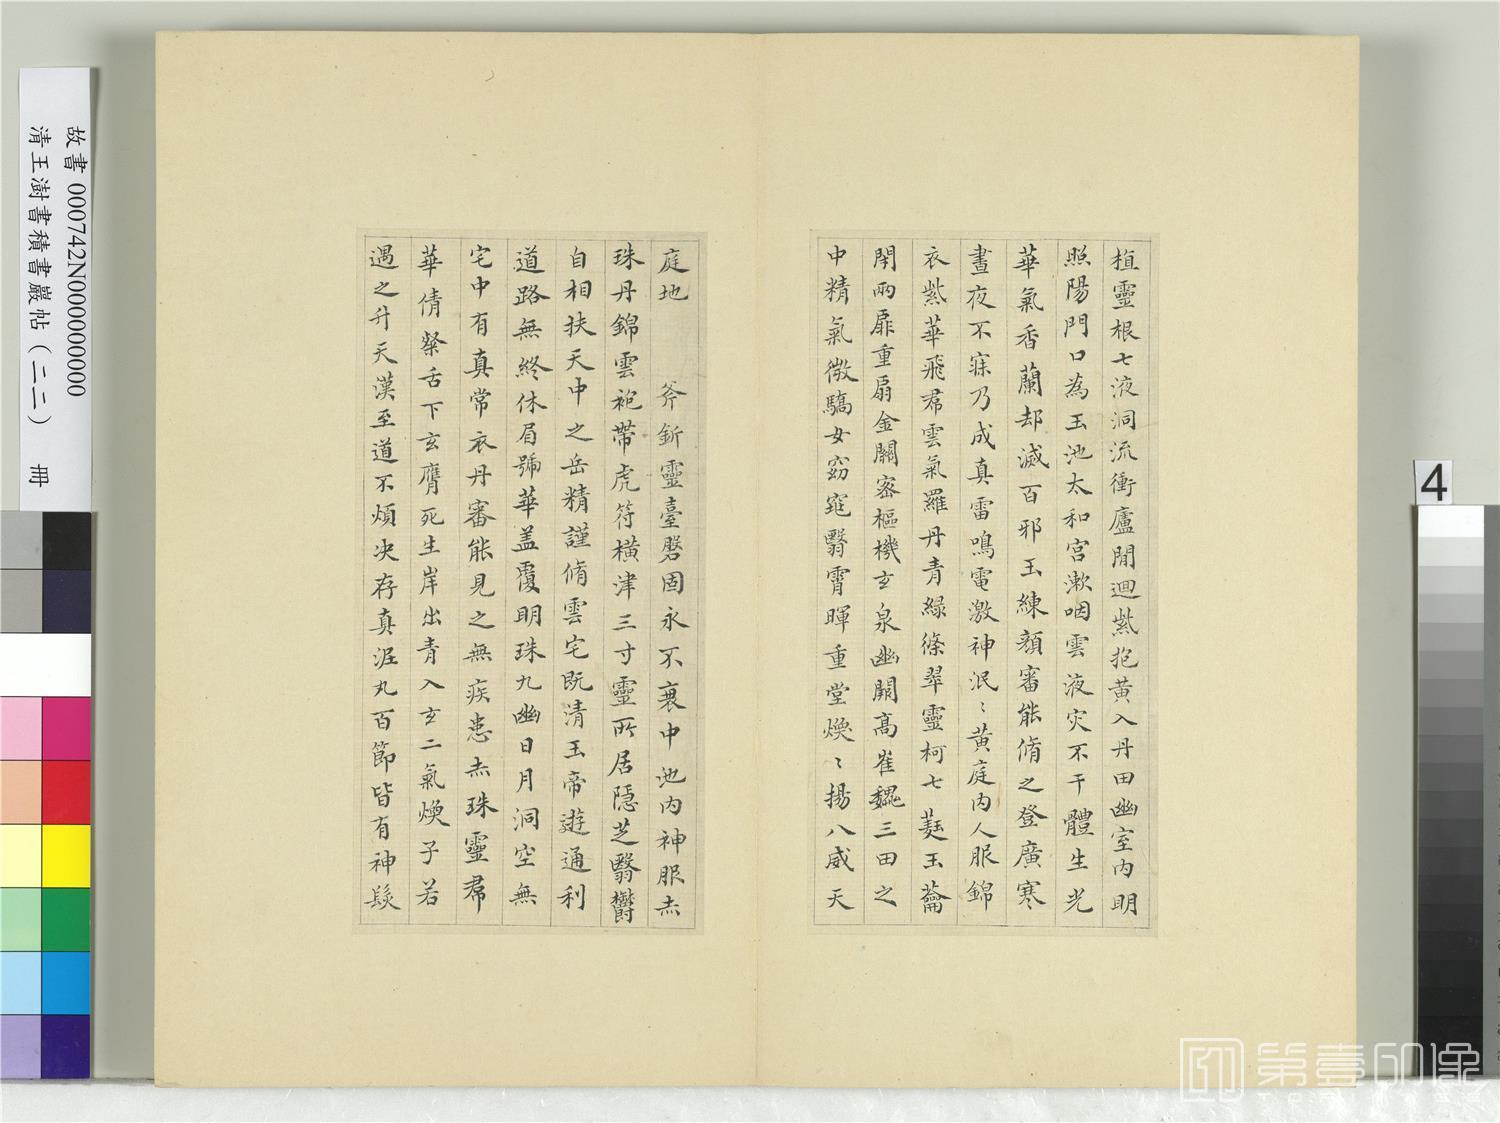 故書 000742N000000000
清王澍書積書巖帖(二二) 冊
4
植靈根七液洞流衝廬間迴紫抱黃入丹田幽室內明
照陽門口為玉池太和宮漱咽雲液灾不干體生光
華氣香蘭却滅百邪玉練顏審能脩之登廣寒
晝夜不寐乃成真雷鳴電激神泯〻黃庭內人服錦
衣紫華飛帬雲氣羅丹青綠條翠靈柯七蕤玉籥
閉兩扉重扇金關密樞機玄泉幽關高崔巍三田之
中精氣微驕女窈窕翳霄暉重堂煥〻揚八威天
庭地 斧釿靈臺磐固永不衰中池內神服赤
珠丹錦雲袍帶虎符橫津三寸靈所居隱芝翳鬱
自相扶天中之岳精謹脩雲宅既清玉帝遊通利
道路無終休眉號華盖覆明珠九幽日月洞空無
宅中有真常衣丹審能見之無疾患赤珠靈帬
華倩粲舌下玄膺死生岸出青入玄二氣煥子若
遇之升天漢至道不煩决存真泥丸百節皆有神髮
第壹印像